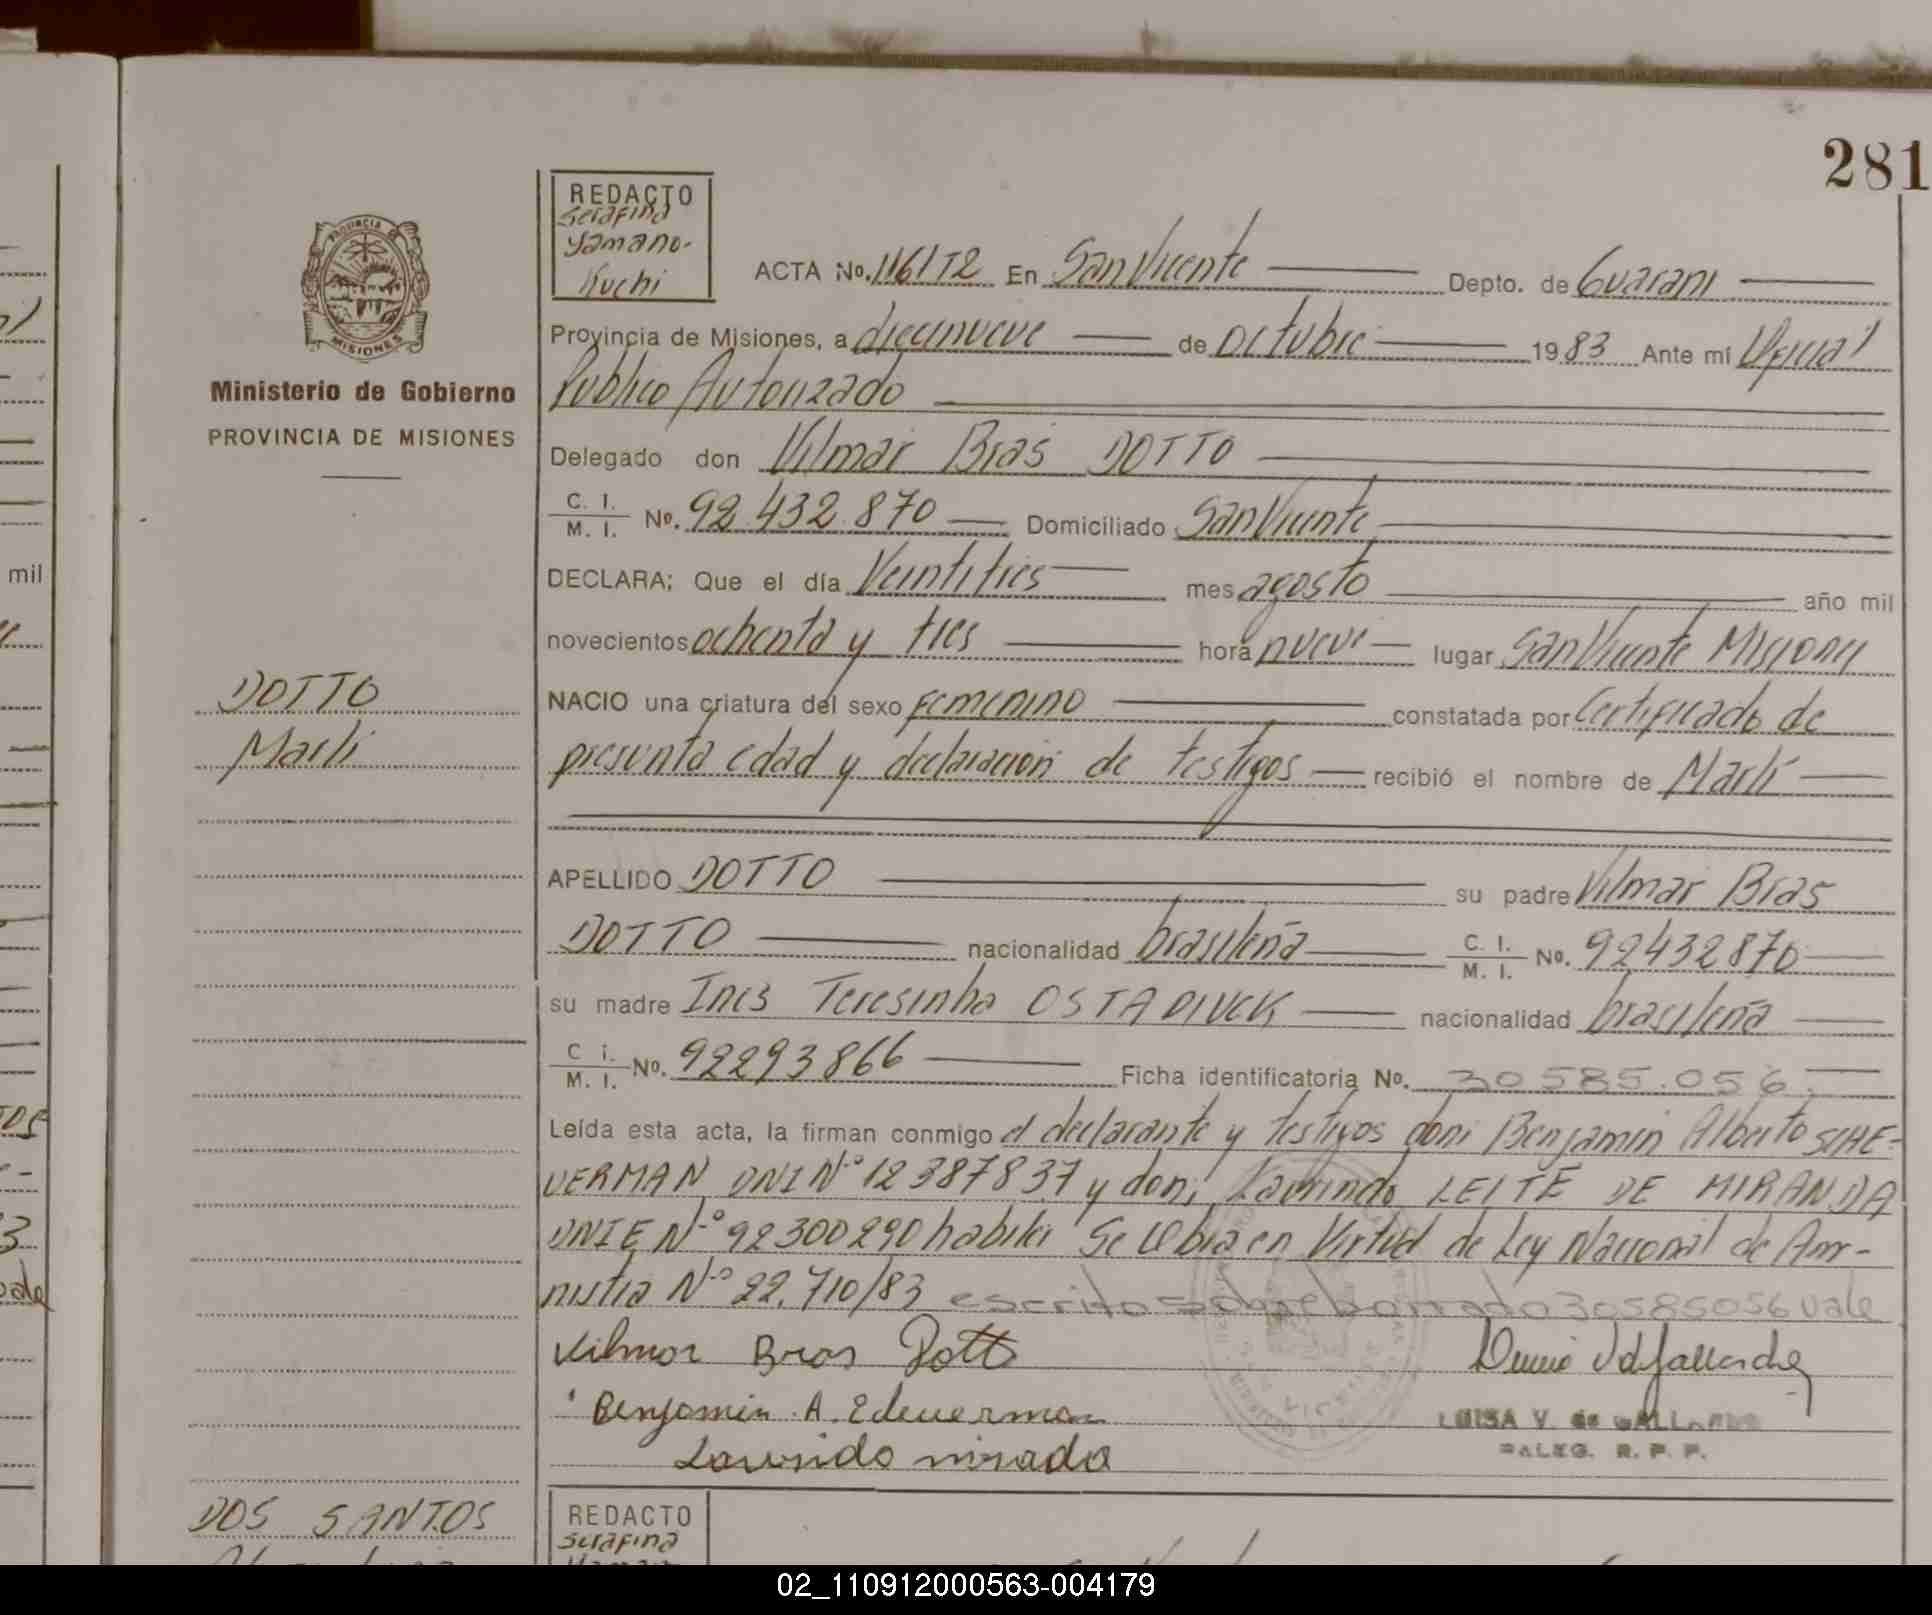 281
REDACTO
Serafina
Yamano-
Kuchi
PROVINCIA DE
MISIONES
Ministerio de Gobierno
PROVINCIA DE MISIONES
ACTA No. 1161T2 En San Vicente Depto. de Guarani
Provincia de Misiones, a diecinueve de octubre 1983 Ante mí Oficial
Publico Autorizado
Delegado don Vilmar Bras DOTTO
C. I. / M. I. No. 92.432.870 Domiciliado San Vicente
DECLARA: Que el día Veintitres mes agosto año mil
novecientos ochenta y tres hora nueve lugar San Vicente Misiones
DOTTO
Marli
NACIO una criatura del sexo Femenino constatada por Certificado de
presunta edad y declaración de testigos recibió el nombre de Marli
APELLIDO DOTTO su padre Vilmar Bras
DOTTO nacionalidad brasileña C. I. / M. I. No. 92432870
su madre Ines Teresinha OSTADIVCK nacionalidad brasileña
C i. / M. I. No. 92293866 Ficha identificatoria No. 30585.056
Leída esta acta, la firman conmigo el declarante y testigos don: Benjamin Alberto SCHE-
VERMAN DNI Nº 12387837 y don: Laurindo LEITE DE MIRANDA
DNIE Nº 92300290 habiles Se labra en Virtud de Ley Nacional de Am-
nistia Nº 22.710/83 escrito sobre borrado 30585056 vale
Vilmar Bras Dotto
Benjamin A.
LUISA V. de GALLARDO
DALEG. R. P. P.
DOS SANTOS
REDACTO
Serafina
mil
02_110912000563-004179